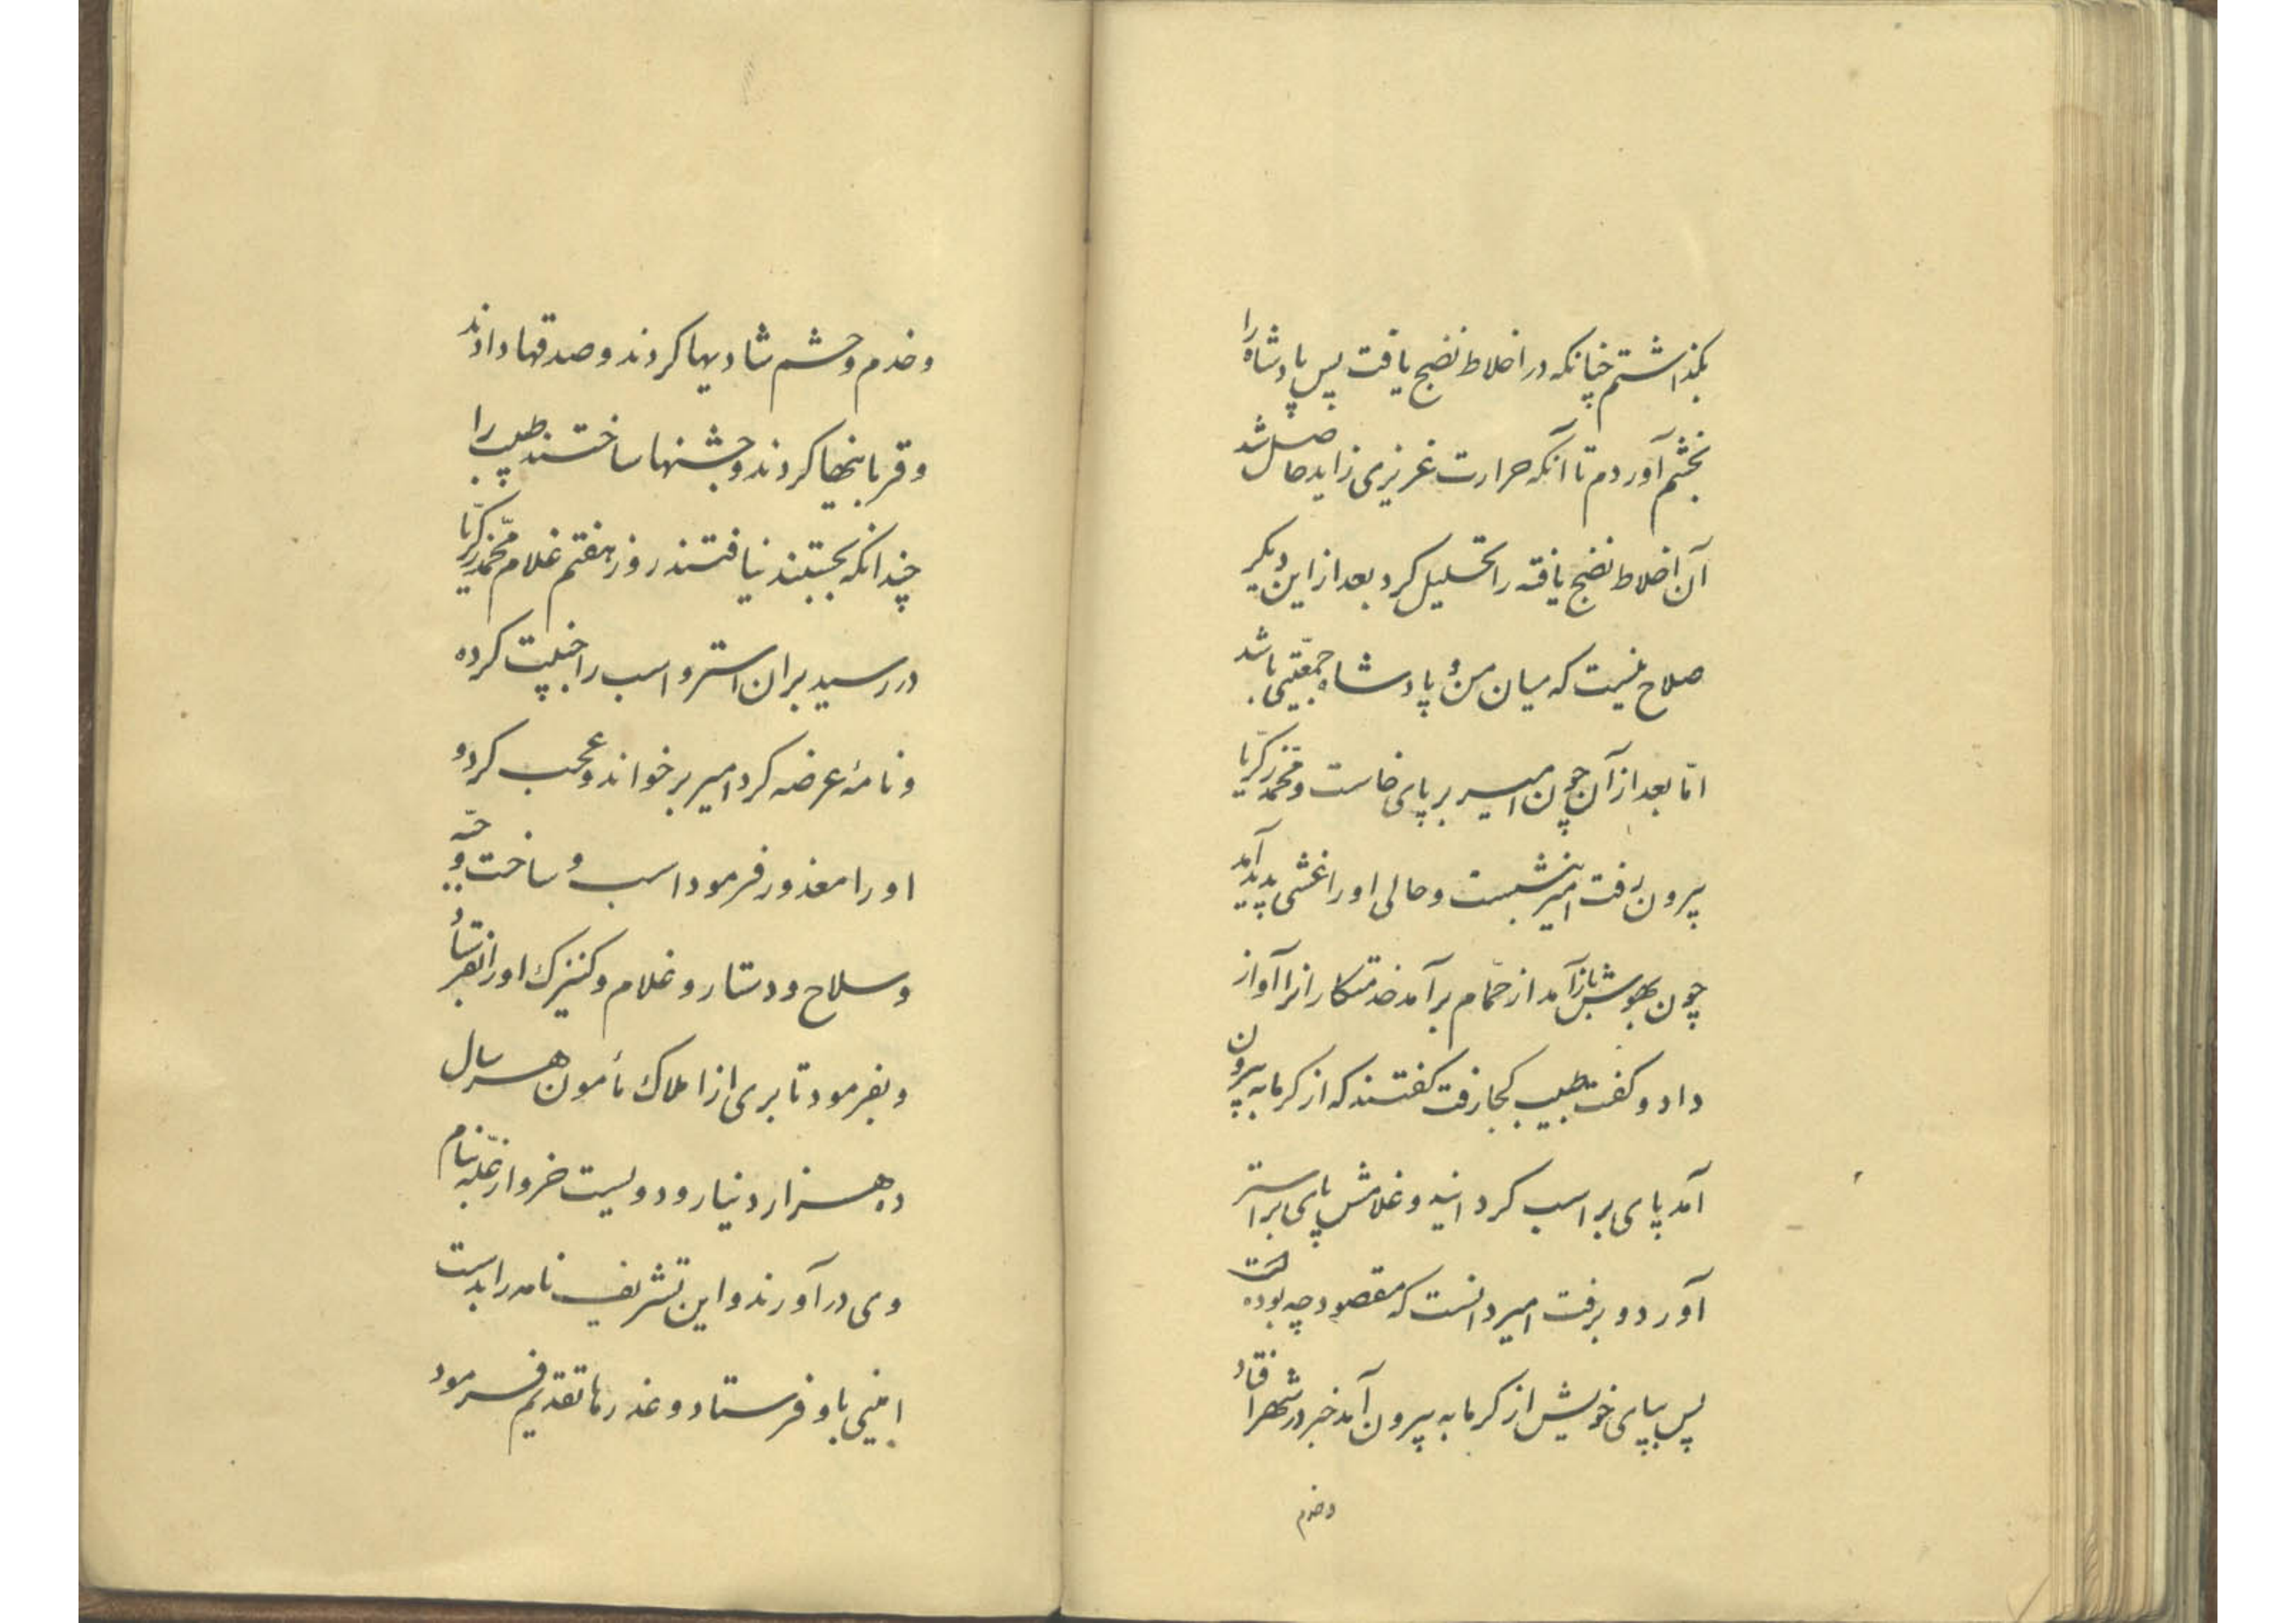 بگذاشتم چنانکه در اخلاط نضج یافت پس پادشاه را
بخشم آوردم تا آنکه حرارت غریزی زاید حاصل شد
آن اخلاط نضج یافته را تحلیل کرد بعد از این دیگر
صلاح نیست که میان من و پادشاه جمعیّتی باشد
امّا بعد از آن چون امیر بر پای خاست و محمّد زکریّا
بیرون رفت امیر بنشست و حالی او را غشی پدید آمد
چون بهوش باز آمد از حمّام برآمد خدمتکارانرا آواز
داد و گفت طبیب کجا رفت گفتند که از گرمابه بیرون
آمد پای بر اسب کردانید و غلامش پای بر استر
آورد و برفت امیر دانست که مقصود چه بوده است
پس بپای خویش از گرمابه بیرون آمد خبر در شهر افتاد
وخدم
و خدم و حشم شادیها کردند و صدقها دادند
و قربانیها کردند و جشنها ساختند طبیب را
چندانکه بجستند نیافتند روز هفتم غلام محمّد زکریّا
در رسید بران استر و اسب را جنیبت کرده
و نامهٔ عرضه کرد امیر برخواند و عجب کرد و
او را معذور فرمود اسب و ساخت و جبّه
و سلاح و دستار و غلام و کنیزک او را بفرستاد
و بفرمود تا بری از املاک مأمون هر سال
ده هزار دینار و دویست خروار غلّه بنام
وی در آورند و این تشریف نامه را بدست
امینی باو فرستاد و عذرها تقدیم فرمود